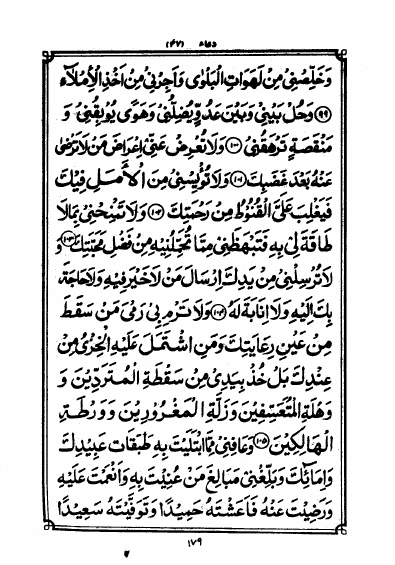 دعاء (۴۷)
وَخَلِّصْنِي مِنْ لَهَوَاتِ الْبَلْوَى وَاَجِرْنِي مِنْ اَخْذِ الْاِمْلَاءِ
۹۹ وَحُلْ بَيْنِي وَبَيْنَ عَدُوٍّ يُضِلُّنِي وَهَوًى يُوبِقُنِي وَ
مَنْقَصَةٍ تَرْهَقُنِي ۱۰۰ وَلَا تُعْرِضْ عَنِّي اِعْرَاضَ مَنْ لَا تَرْضَى
عَنْهُ بَعْدَ غَضَبِكَ ۱۰۱ وَلَا تُؤْيِسْنِي مِنَ الْاَمَلِ فِيكَ
فَيَغْلِبَ عَلَيَّ الْقُنُوطُ مِنْ رَحْمَتِكَ ۱۰۲ وَلَا تَمْنِحْنِي بِمَا لَا
طَاقَةَ لِي بِهِ فَتَبْهَظَنِي مِمَّا تُحَمِّلُنِيهِ مِنْ فَضْلِ مَحَبَّتِكَ ۱۰۳ وَ
لَا تُرْسِلْنِي مِنْ يَدِكَ اِرْسَالَ مَنْ لَا خَيْرَ فِيهِ وَلَا حَاجَةَ
بِكَ اِلَيْهِ وَلَا اِنَابَةَ لَهُ ۱۰۴ وَلَا تَرْمِ بِي رَمْيَ مَنْ سَقَطَ
مِنْ عَيْنِ رِعَايَتِكَ وَمَنِ اشْتَمَلَ عَلَيْهِ الْخِزْيُ مِنْ
عِنْدِكَ بَلْ خُذْ بِيَدِي مِنْ سَقْطَةِ الْمُتَرَدِّينَ وَ
وَهْلَةِ الْمُتَعَسِّفِينَ وَزَلَّةِ الْمَغْرُورِينَ وَوَرْطَةِ
الْهَالِكِينَ ۱۰۵ وَعَافِنِي مِمَّا ابْتَلَيْتَ بِهِ طَبَقَاتِ عَبِيدِكَ
وَاِمَائِكَ وَبَلِّغْنِي مَبَالِغَ مَنْ عُنِيتَ بِهِ وَاَنْعَمْتَ عَلَيْهِ
وَرَضِيتَ عَنْهُ فَاَعَشْتَهُ حَمِيدًا وَتَوَفَّيْتَهُ سَعِيدًا
۱۷۹